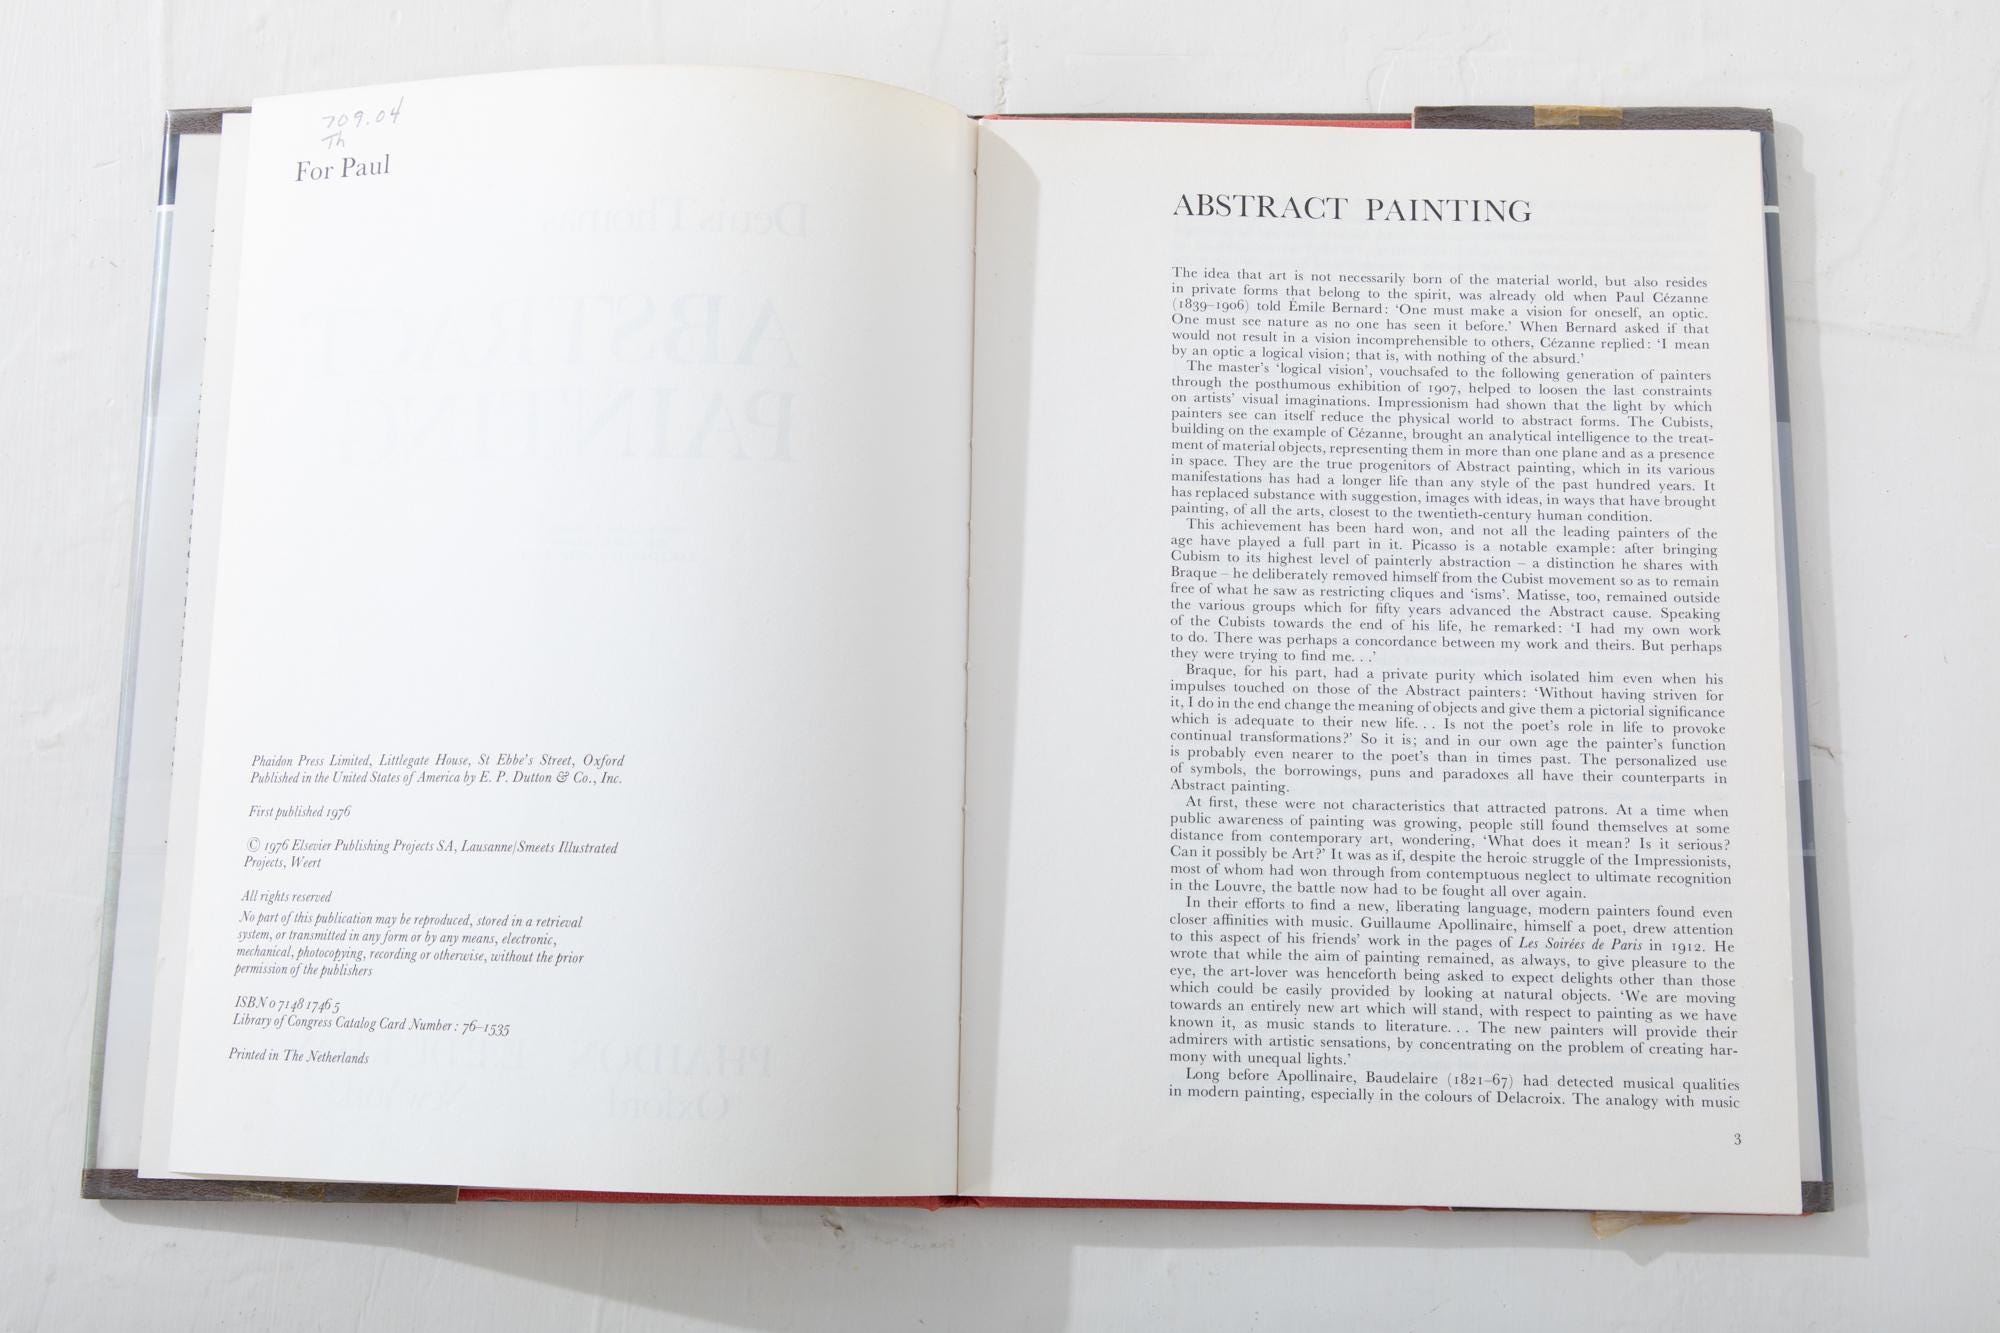 709.04
Th
For Paul
Denis Thomas
ABSTRACT
PAINTING
Phaidon Press Limited, Littlegate House, St Ebbe's Street, Oxford
Published in the United States of America by E. P. Dutton & Co., Inc.
First published 1976
© 1976 Elsevier Publishing Projects SA, Lausanne/Smeets Illustrated
Projects, Weert
All rights reserved
No part of this publication may be reproduced, stored in a retrieval
system, or transmitted in any form or by any means, electronic,
mechanical, photocopying, recording or otherwise, without the prior
permission of the publishers
ISBN 0 7148 1746 5
Library of Congress Catalog Card Number: 76–1535
Printed in The Netherlands
PHAIDON
Oxford New York
ABSTRACT PAINTING
The idea that art is not necessarily born of the material world, but also resides
in private forms that belong to the spirit, was already old when Paul Cézanne
(1839–1906) told Émile Bernard: ‘One must make a vision for oneself, an optic.
One must see nature as no one has seen it before.’ When Bernard asked if that
would not result in a vision incomprehensible to others, Cézanne replied: ‘I mean
by an optic a logical vision; that is, with nothing of the absurd.’
The master's ‘logical vision’, vouchsafed to the following generation of painters
through the posthumous exhibition of 1907, helped to loosen the last constraints
on artists' visual imaginations. Impressionism had shown that the light by which
painters see can itself reduce the physical world to abstract forms. The Cubists,
building on the example of Cézanne, brought an analytical intelligence to the treat-
ment of material objects, representing them in more than one plane and as a presence
in space. They are the true progenitors of Abstract painting, which in its various
manifestations has had a longer life than any style of the past hundred years. It
has replaced substance with suggestion, images with ideas, in ways that have brought
painting, of all the arts, closest to the twentieth-century human condition.
This achievement has been hard won, and not all the leading painters of the
age have played a full part in it. Picasso is a notable example: after bringing
Cubism to its highest level of painterly abstraction – a distinction he shares with
Braque – he deliberately removed himself from the Cubist movement so as to remain
free of what he saw as restricting cliques and ‘isms’. Matisse, too, remained outside
the various groups which for fifty years advanced the Abstract cause. Speaking
of the Cubists towards the end of his life, he remarked: ‘I had my own work
to do. There was perhaps a concordance between my work and theirs. But perhaps
they were trying to find me. . .’
Braque, for his part, had a private purity which isolated him even when his
impulses touched on those of the Abstract painters: ‘Without having striven for
it, I do in the end change the meaning of objects and give them a pictorial significance
which is adequate to their new life. . . Is not the poet's role in life to provoke
continual transformations?’ So it is; and in our own age the painter's function
is probably even nearer to the poet's than in times past. The personalized use
of symbols, the borrowings, puns and paradoxes all have their counterparts in
Abstract painting.
At first, these were not characteristics that attracted patrons. At a time when
public awareness of painting was growing, people still found themselves at some
distance from contemporary art, wondering, ‘What does it mean? Is it serious?
Can it possibly be Art?’ It was as if, despite the heroic struggle of the Impressionists,
most of whom had won through from contemptuous neglect to ultimate recognition
in the Louvre, the battle now had to be fought all over again.
In their efforts to find a new, liberating language, modern painters found even
closer affinities with music. Guillaume Apollinaire, himself a poet, drew attention
to this aspect of his friends' work in the pages of Les Soirées de Paris in 1912. He
wrote that while the aim of painting remained, as always, to give pleasure to the
eye, the art-lover was henceforth being asked to expect delights other than those
which could be easily provided by looking at natural objects. ‘We are moving
towards an entirely new art which will stand, with respect to painting as we have
known it, as music stands to literature. . . The new painters will provide their
admirers with artistic sensations, by concentrating on the problem of creating har-
mony with unequal lights.’
Long before Apollinaire, Baudelaire (1821–67) had detected musical qualities
in modern painting, especially in the colours of Delacroix. The analogy with music
3